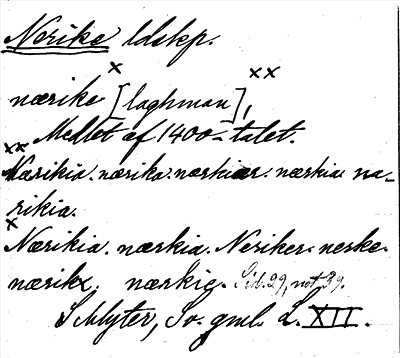 Nerike ldskp.
x xx
nærike [laghman],
Medlet af 1400-talet.
xx
Nærikia. nærika. nærkiær. nærkia. næ-
rikia.
x
Nærikia. nærkia. Neriker. nerke.
nærikæ. nærkie. Sid. 29, not 39.
Schlyter, Sv. gml. L. XII.